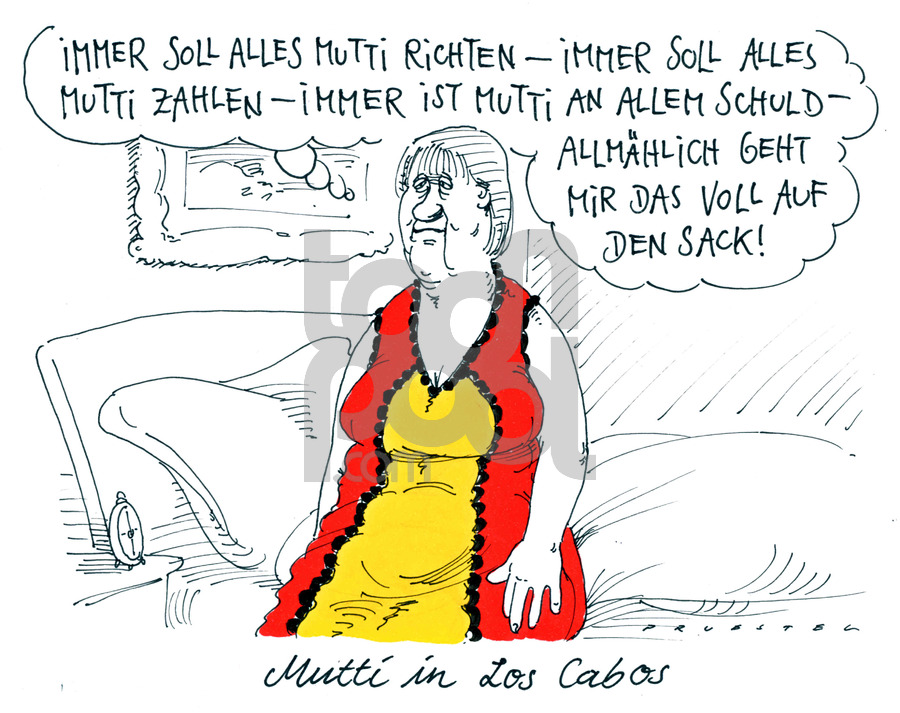 IMMER SOLL ALLES MUTTI RICHTEN – IMMER SOLL ALLES
MUTTI ZAHLEN – IMMER IST MUTTI AN ALLEM SCHULD –
ALLMÄHLICH GEHT
MIR DAS VOLL AUF
DEN SACK!
toon
pool
.com
PRUESTEL
Mutti in Los Cabos